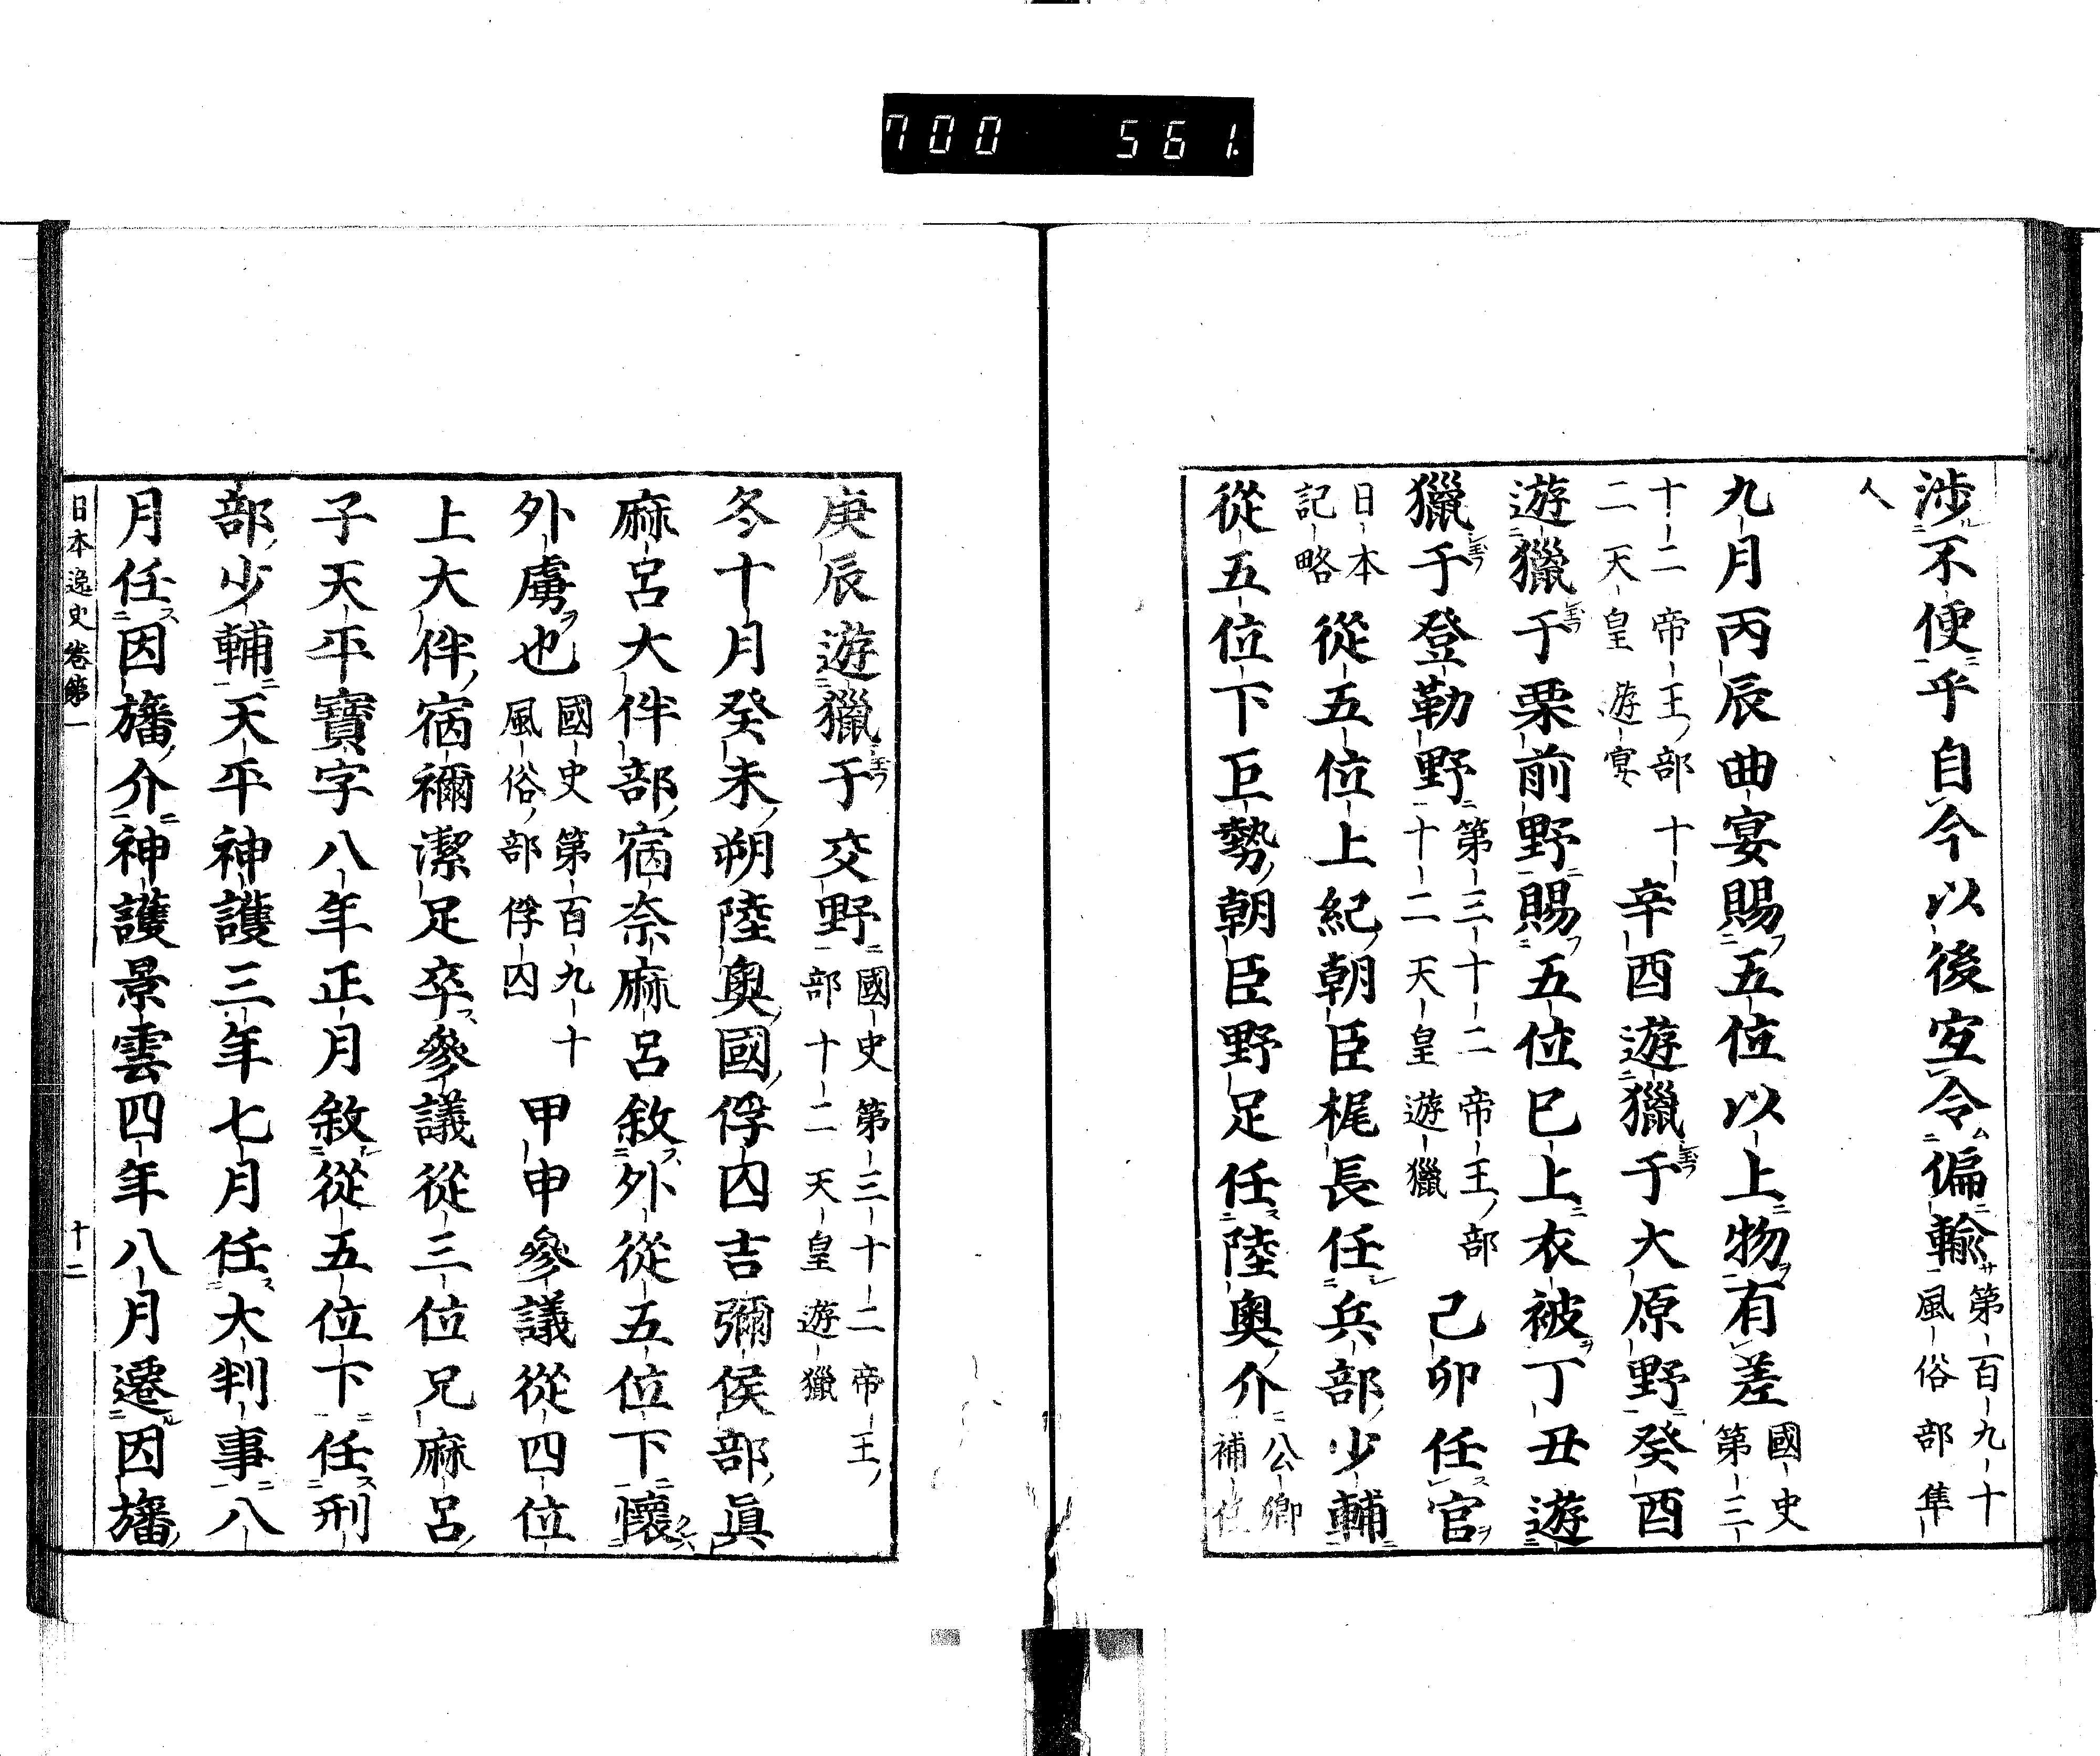 700 561.
涉不便乎自今以後宜令偏輸第百九十風俗部隼
人
九月丙辰曲宴賜五位以上物有差國史第三
十二帝王部十二天皇遊宴辛酉遊獵于大原野癸酉
遊獵于栗前野賜五位已上衣被丁丑遊
獵于登勒野第三十二帝王部十二天皇遊獵己卯任官
日本記略從五位上紀朝臣梶長任兵部少輔
從五位下巨勢朝臣野足任陸奧介公卿補任
庚辰遊獵于交野國史第三十二帝王部十二天皇遊獵
冬十月癸未朔陸奧國俘囚吉彌侯部眞
麻呂大伴部宿奈麻呂敘外從五位下懷
外虜也國史第百九十風俗部俘囚甲申參議從四位
上大伴宿禰潔足卒參議從三位兄麻呂
子天平寶字八年正月敘從五位下任刑
部少輔天平神護三年七月任大判事八
月任因旛介神護景雲四年八月遷因旛
日本逸史卷第一 十二